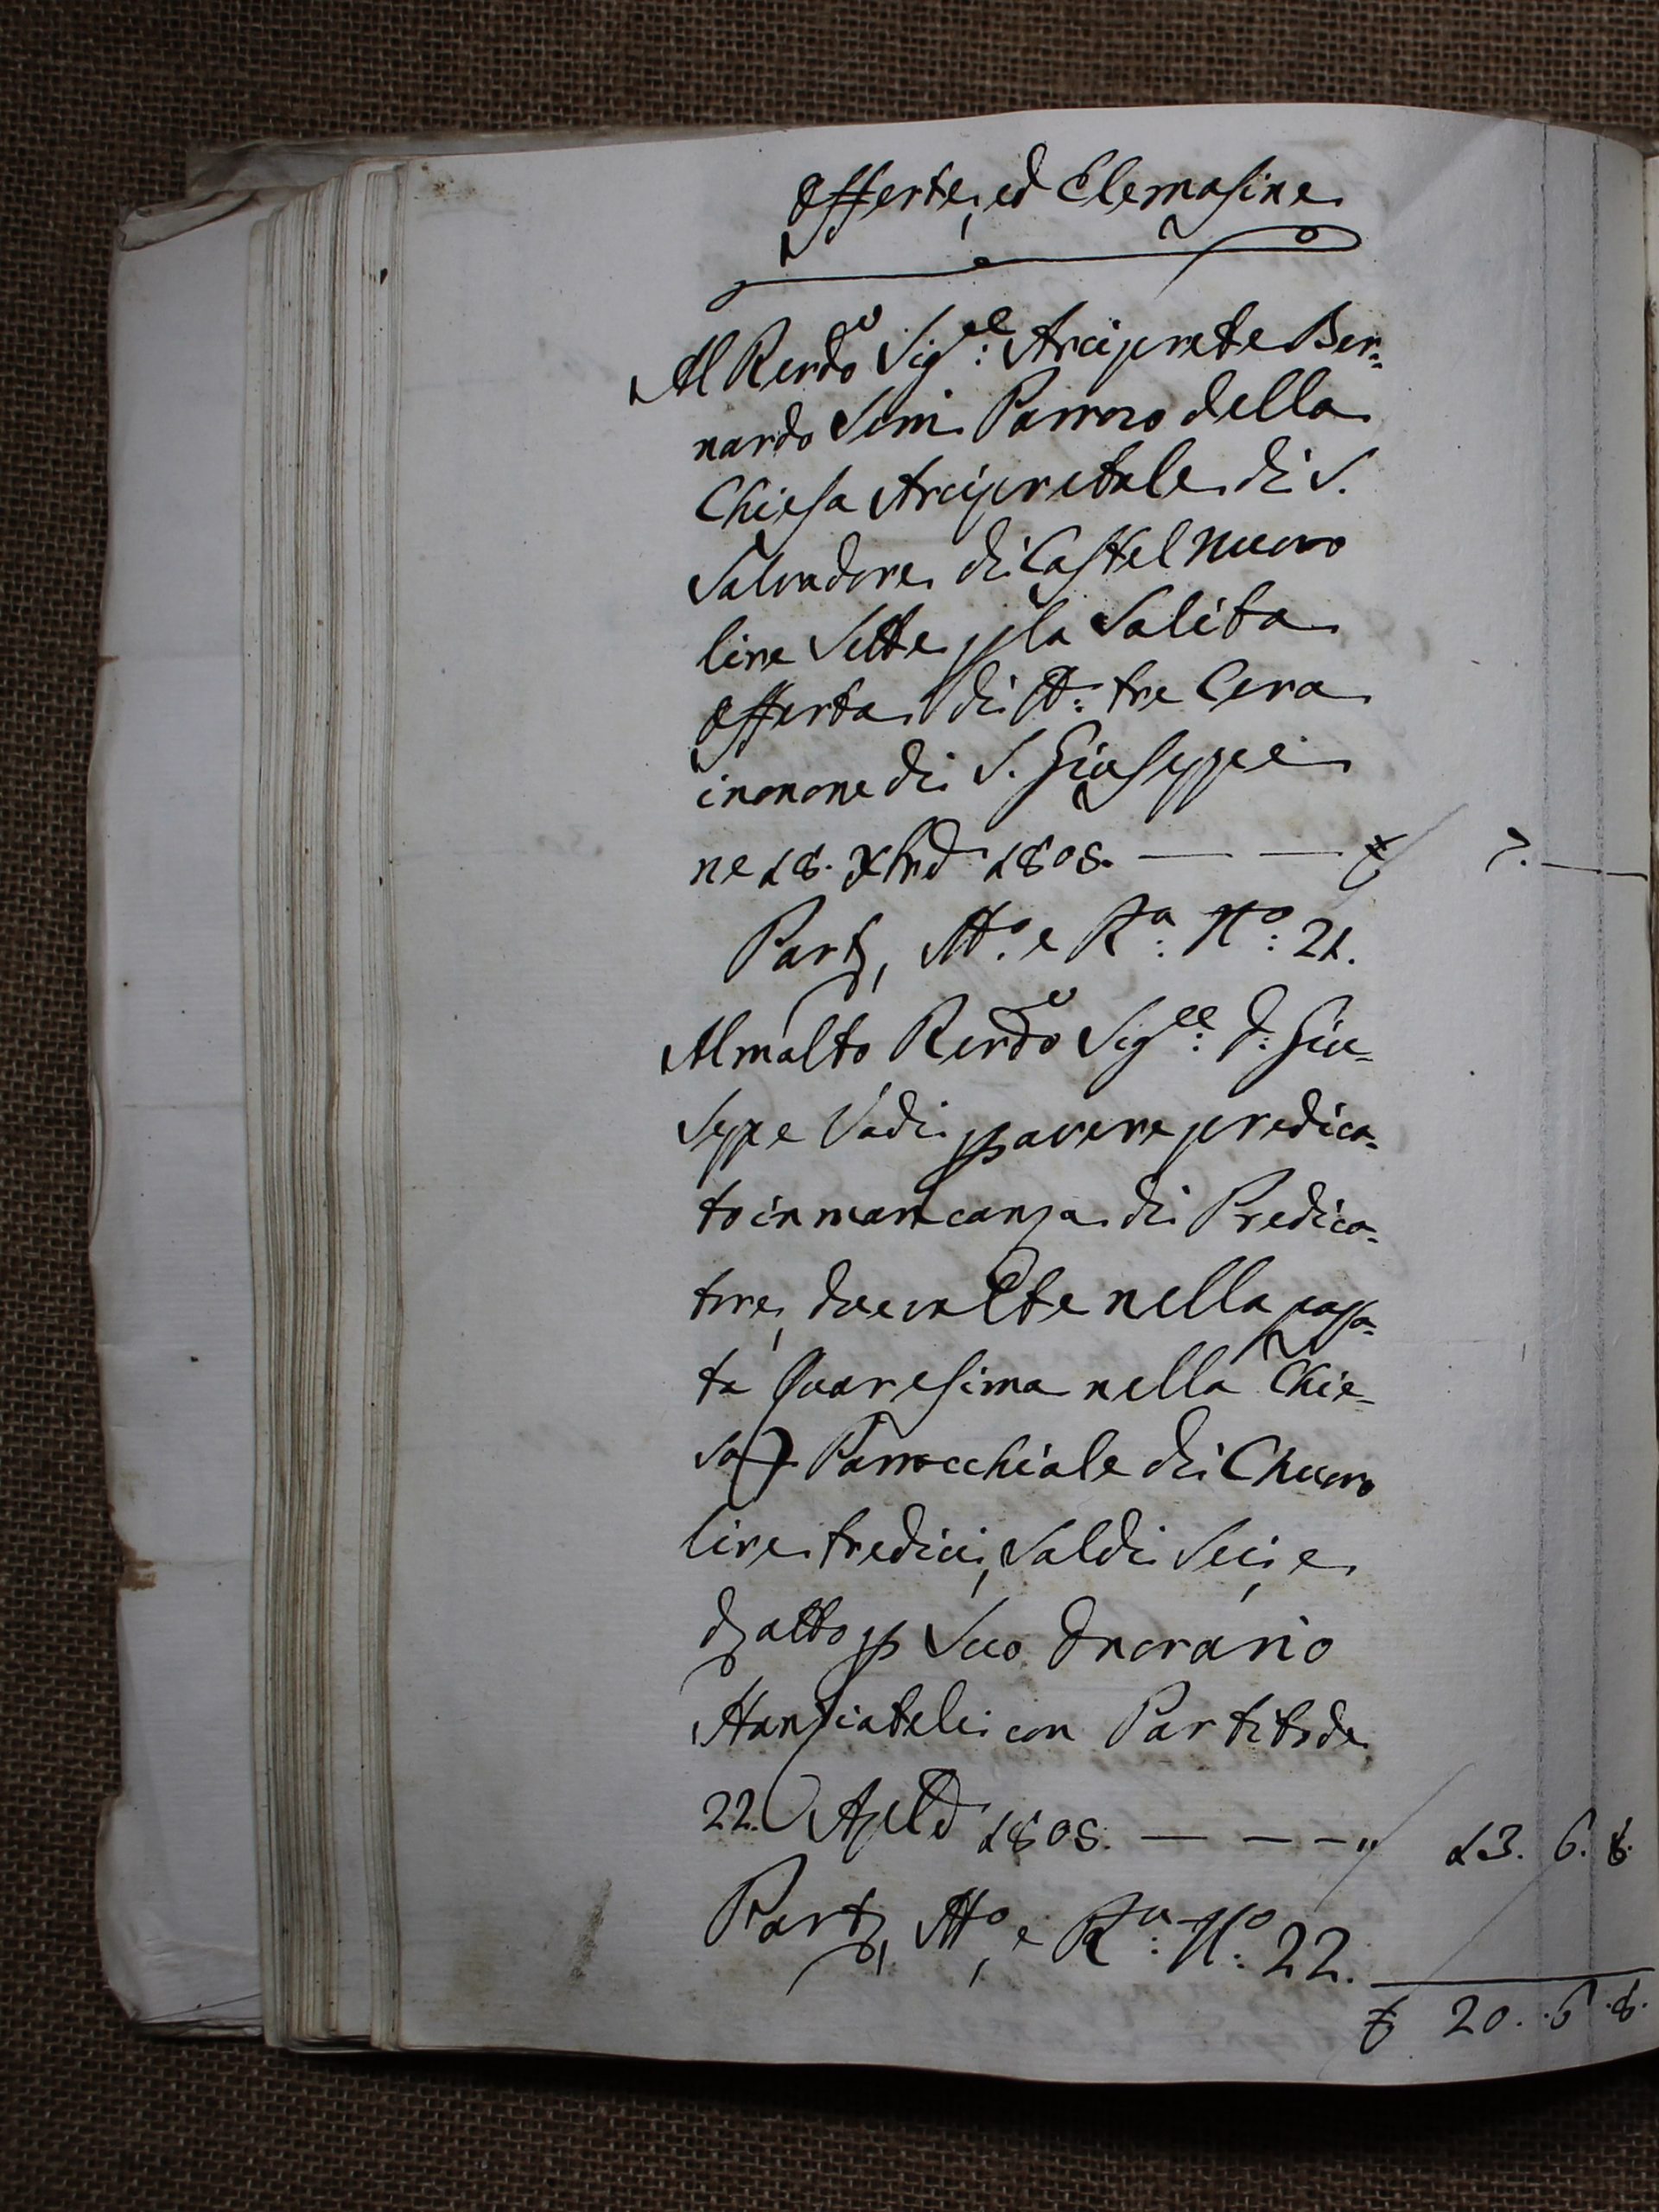 Offerte, ed Elemosine
Al Rendo Sigre: Arciprete Ber=
nardo Sini Parroco della
Chiesa Arcipretale di S.
Salvadore di Castel Nuovo
lire Sette p la Solita
Offerta di tt: tre Cera
in onore di S. Giuseppe
ne 18. Xbre 1808. — — £ 7. —
Part, Mto. e Ra: No: 21.
Al molto Rendo Sigre: D: Giu=
seppe Vadi p avere predica=
to in mancanza di Predica=
tore, due volte nella passa=
ta Quaresima nella Chie=
sa Parrocchiale di C nuovo
lire tredici, Soldi Sei, e
d otto p Suo Onorario
Stanziateli con Partito de
22. Aple 1808. — — — " 13. 6. 8.
Part, Mto, e Ra: No: 22.
£ 20. 6. 8.